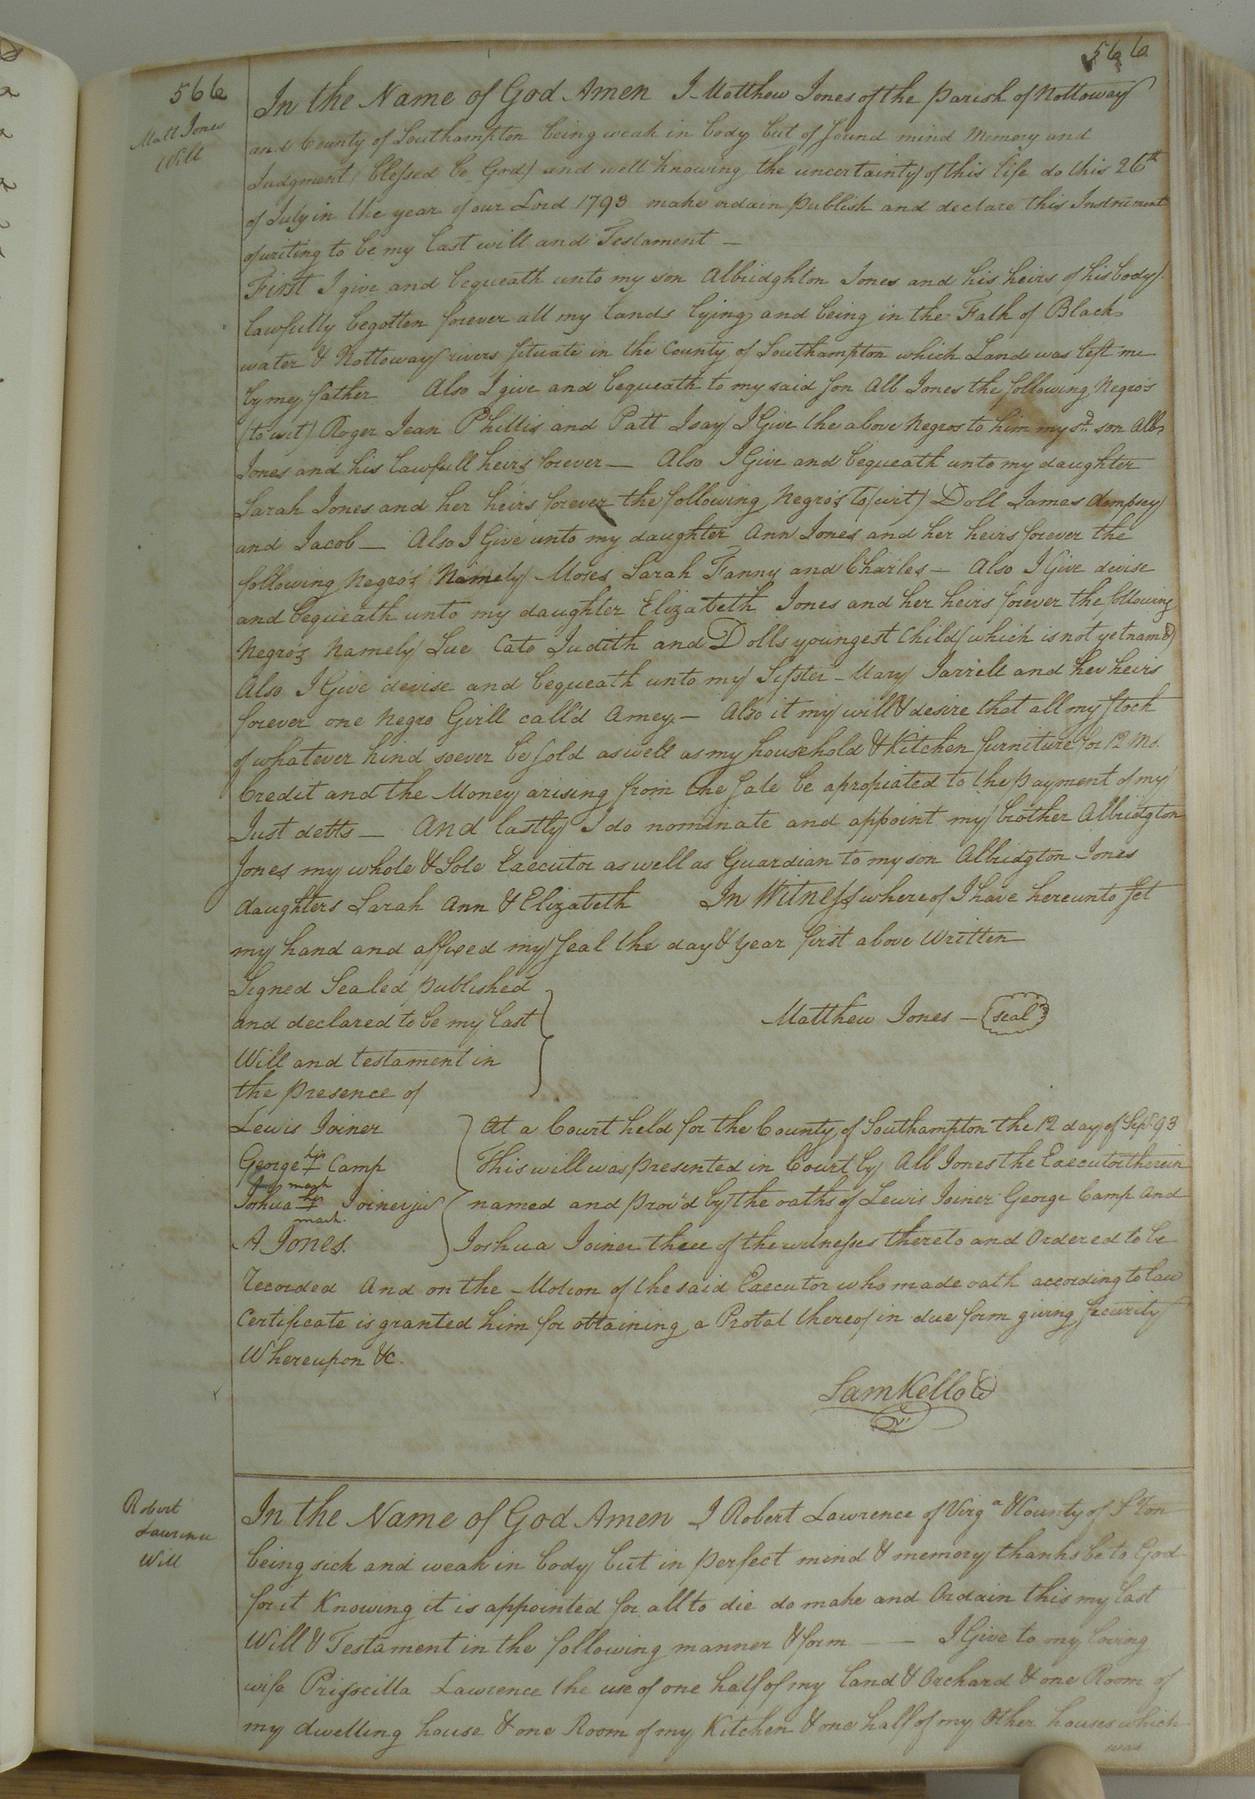 566
566
Matt Jones
Will
In the Name of God Amen I Matthew Jones of the parish of Nottoway
and County of Southampton being weak in body but of sound mind Memory and
Judgment (blessed be God) and well knowing the uncertainty of this life do this 26th
of July in the year of our Lord 1793 make ordain publish and declare this Instrument
of writing to be my last will and Testament —
First I give and bequeath unto my son Albridghton Jones and his heirs of his body
lawfully begotten forever all my lands lying and being in the Falk of Black
water & Nottoway rivers situate in the County of Southampton which Land was left me
by my father Also I give and bequeath to my said son Alb Jones the following Negro's
(to wit) Roger Jean Phillis and Patt I say I Give the above Negros to him my sd. son Alb
Jones and his lawfull heirs forever — Also I Give and bequeath unto my daughter
Sarah Jones and her heirs forever the following Negro's To (wit) Doll James dempsey
and Jacob — Also I Give unto my daughter Ann Jones and her heirs forever the
following Negro's Namely Moses Sarah Fanny and Charles — Also I Give devise
and bequeath unto my daughter Elizabeth Jones and her heirs forever the following
Negro's Namely Lue Cate Judith and Dolls youngest Child (which is not yet nam'd)
Also I Give devise and bequeath unto my Sister Mary Jarrell and her heirs
forever one Negro Girll call'd Amey — Also it my will & desire that all my stock
of whatever kind soever be sold as well as my household & Kitchen furniture for 12 Ms.
Credit and the Money arising from the sale be apropiated to the payment of my
Just debts — And lastly I do nominate and appoint my brother Albridgton
Jones my whole & Sole Executor as well as Guardian to my son Albridgton Jones
daughters Sarah Ann & Elizabeth In Witness whereof I have hereunto set
my hand and affixed my seal the day & year first above Written
Signed Sealed published
and declared to be my last
Matthew Jones — seal
Will and testament in
the presence of
Lewis Joiner
At a Court held for the County of Southampton the 12 day of Sept 93
George his + mark Camp
This will was presented in Court by Alb Jones the Executor therein
Joshua his + mark Joiner jur
named and prov'd by the oaths of Lewis Joiner George Camp and
A Jones.
Joshua Joiner three of the witnesses thereto and Ordered to be
recorded And on the Motion of the said Executor who made oath according to law
Certificate is granted him for obtaining a Probat thereof in due form giving security
Whereupon &c.
Sam Kello
Robert
Lawrence
Will
In the Name of God Amen I Robert Lawrence of Virga & County of S Ton
being sick and weak in body but in perfect mind & memory thanks be to God
for it Knowing it is appointed for all to die do make and Ordain this my last
Will & Testament in the following manner & form — — I Give to my loving
wife Prisscilla Lawrence the use of one half of my land & Orchard & one Room of
my dwelling house & one Room of my Kitchen & one half of my Other houses which
was